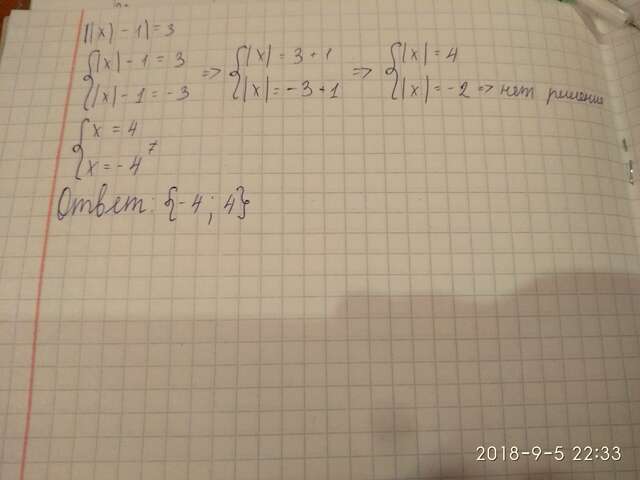 ||x| - 1| = 3
{|x| - 1 = 3 => {|x| = 3 + 1 => {|x| = 4
{|x| - 1 = -3 {|x| = -3 + 1 {|x| = -2 => нет решения
{x = 4
{x = -4
Ответ: {-4; 4}
2018-9-5 22:33